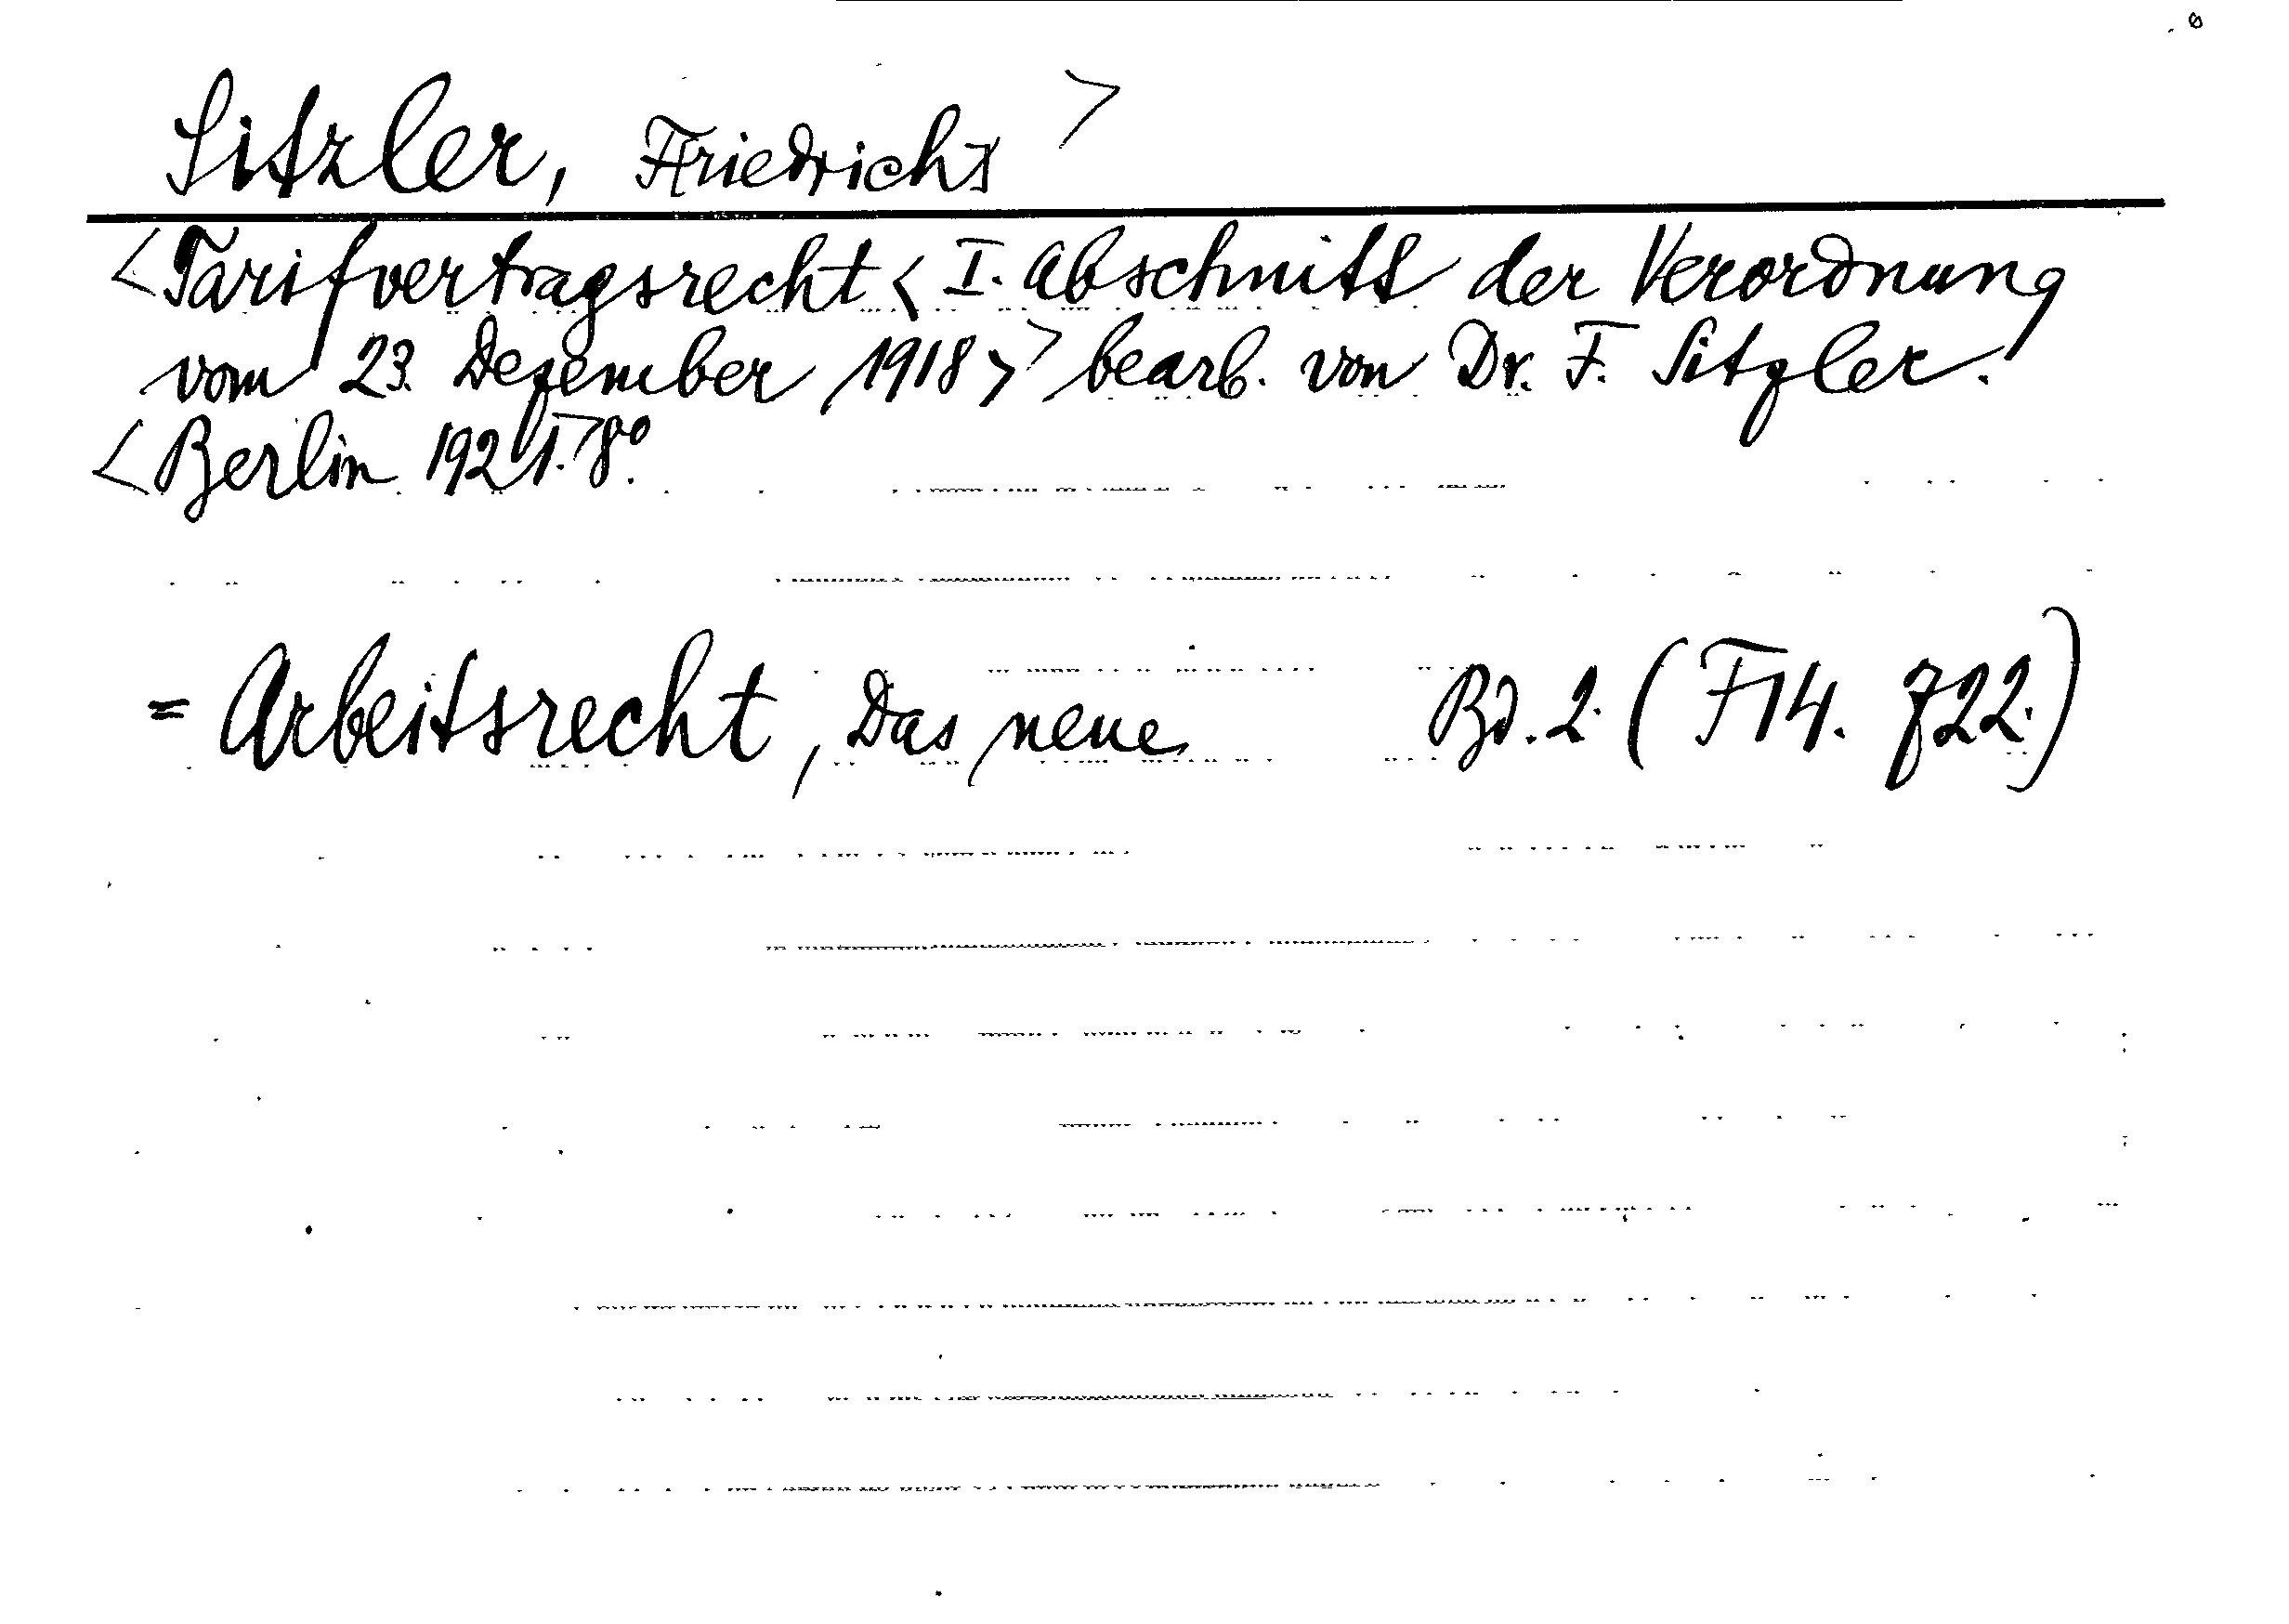 Sitzler, F[riedrich] >
<Tarifvertragsrecht < I. Abschnitt der Verordnung
vom 23. Dezember 1918 > > bearb. von Dr. F. Sitzler.
<Berlin 1921.> 8°.
= Arbeitsrecht, Das neue Bd. 2. (F 14. 722.)